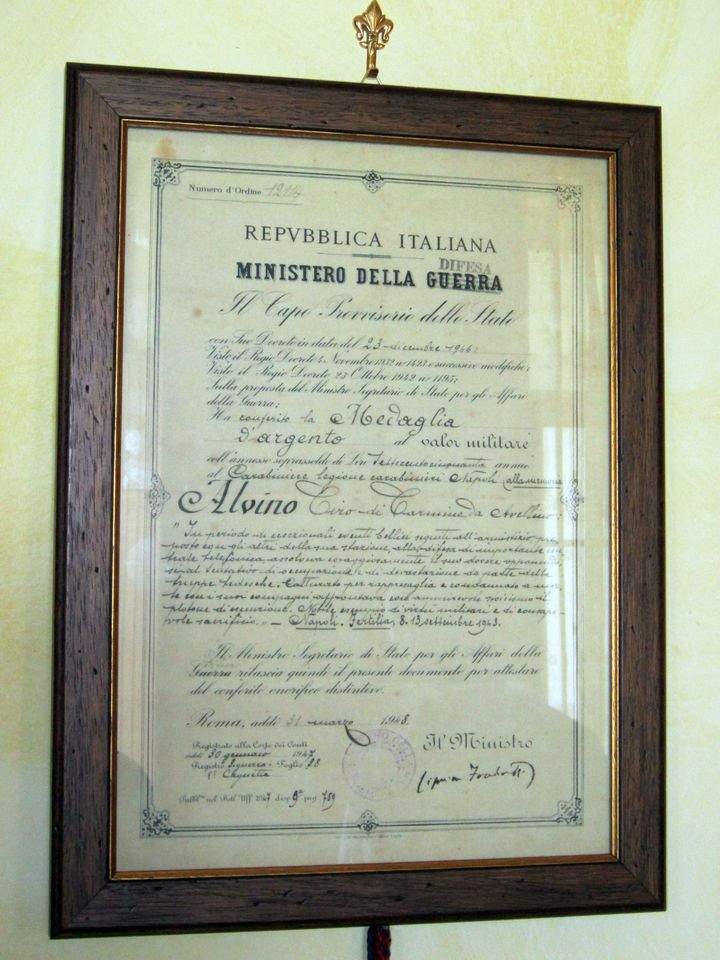 Numero d'Ordine 1214
REPVBBLICA ITALIANA
DIFESA
MINISTERO DELLA GUERRA
Il Capo Provvisorio dello Stato
con Suo Decreto in data del 23-dicembre 1946:
Visto il Regio Decreto 4 Novembre 1932 nº 1423 e successive modifiche;
Visto il Regio Decreto 23 Ottobre 1942 nº 1195;
Sulla proposta del Ministro Segretario di Stato per gli Affari
della Guerra;
Ha conferito la Medaglia
d'argento al valor militare
coll'annesso soprassoldo di Lire settecentocinquanta annue
al Carabiniere legione carabinieri Napoli (alla memoria)
Alvino Ciro di Carmine da Avellino:
"In periodo di eccezionali eventi bellici seguiti all'armistizio, pre
posto con gli altri della sua stazione, alla difesa di importante cen
trale telefonica, assolveva coraggiosamente il suo dovere opponendo
si al tentativo di occupazione e di devastazione da parte delle
truppe tedesche. Catturato per rappresaglia e condannato a mor
te con i suoi compagni affrontava con ammirevole stoicismo il
plotone di esecuzione. Nobile esempio di virtù militari e di consape
vole sacrificio." - Napoli. Tertilia, 8.13 settembre 1943.
Il Ministro Segretario di Stato per gli Affari della
Guerra rilascia quindi il presente documento per attestare
del conferito onorifico distintivo.
Roma, addì 31 marzo 1948.
Registrato alla Corte dei Conti
addì 30 gennaio 1947
Registro 2 guerra - Foglio 28
Il Ministro
Pubb.to nel Boll. Uff. 1947 disp. 9ª pag. 759